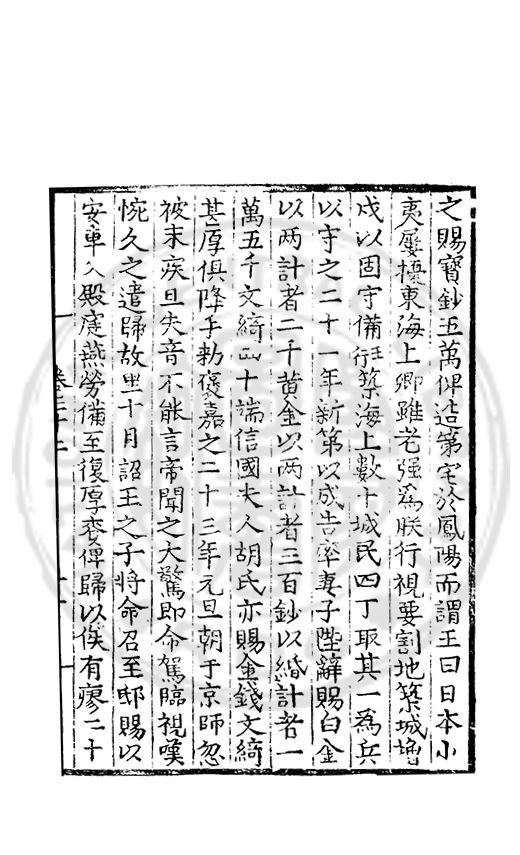 之賜寶鈔五萬俾造第宅於鳳陽而謂王曰日本小
夷屢擾東海上卿雖老强爲朕行視要割地築城增
戍以固守備王徃築海上數十城民四丁取其一爲兵
以守之二十一年新第以成告率妻子陛辭賜白金
以两計者二千黄金以两計者三百鈔以緡計者一
萬五千文綺四十端信國夫人胡氏亦賜金錢文綺
甚厚俱降手勅襃嘉之二十三年元旦朝于京師忽
被末疾且失音不能言帝聞之大驚即命駕臨視嘆
惋久之遣歸故里十月詔王之子將命召至邸賜以
安車入殿廷燕勞備至復厚賚俾歸以俟有廖二十